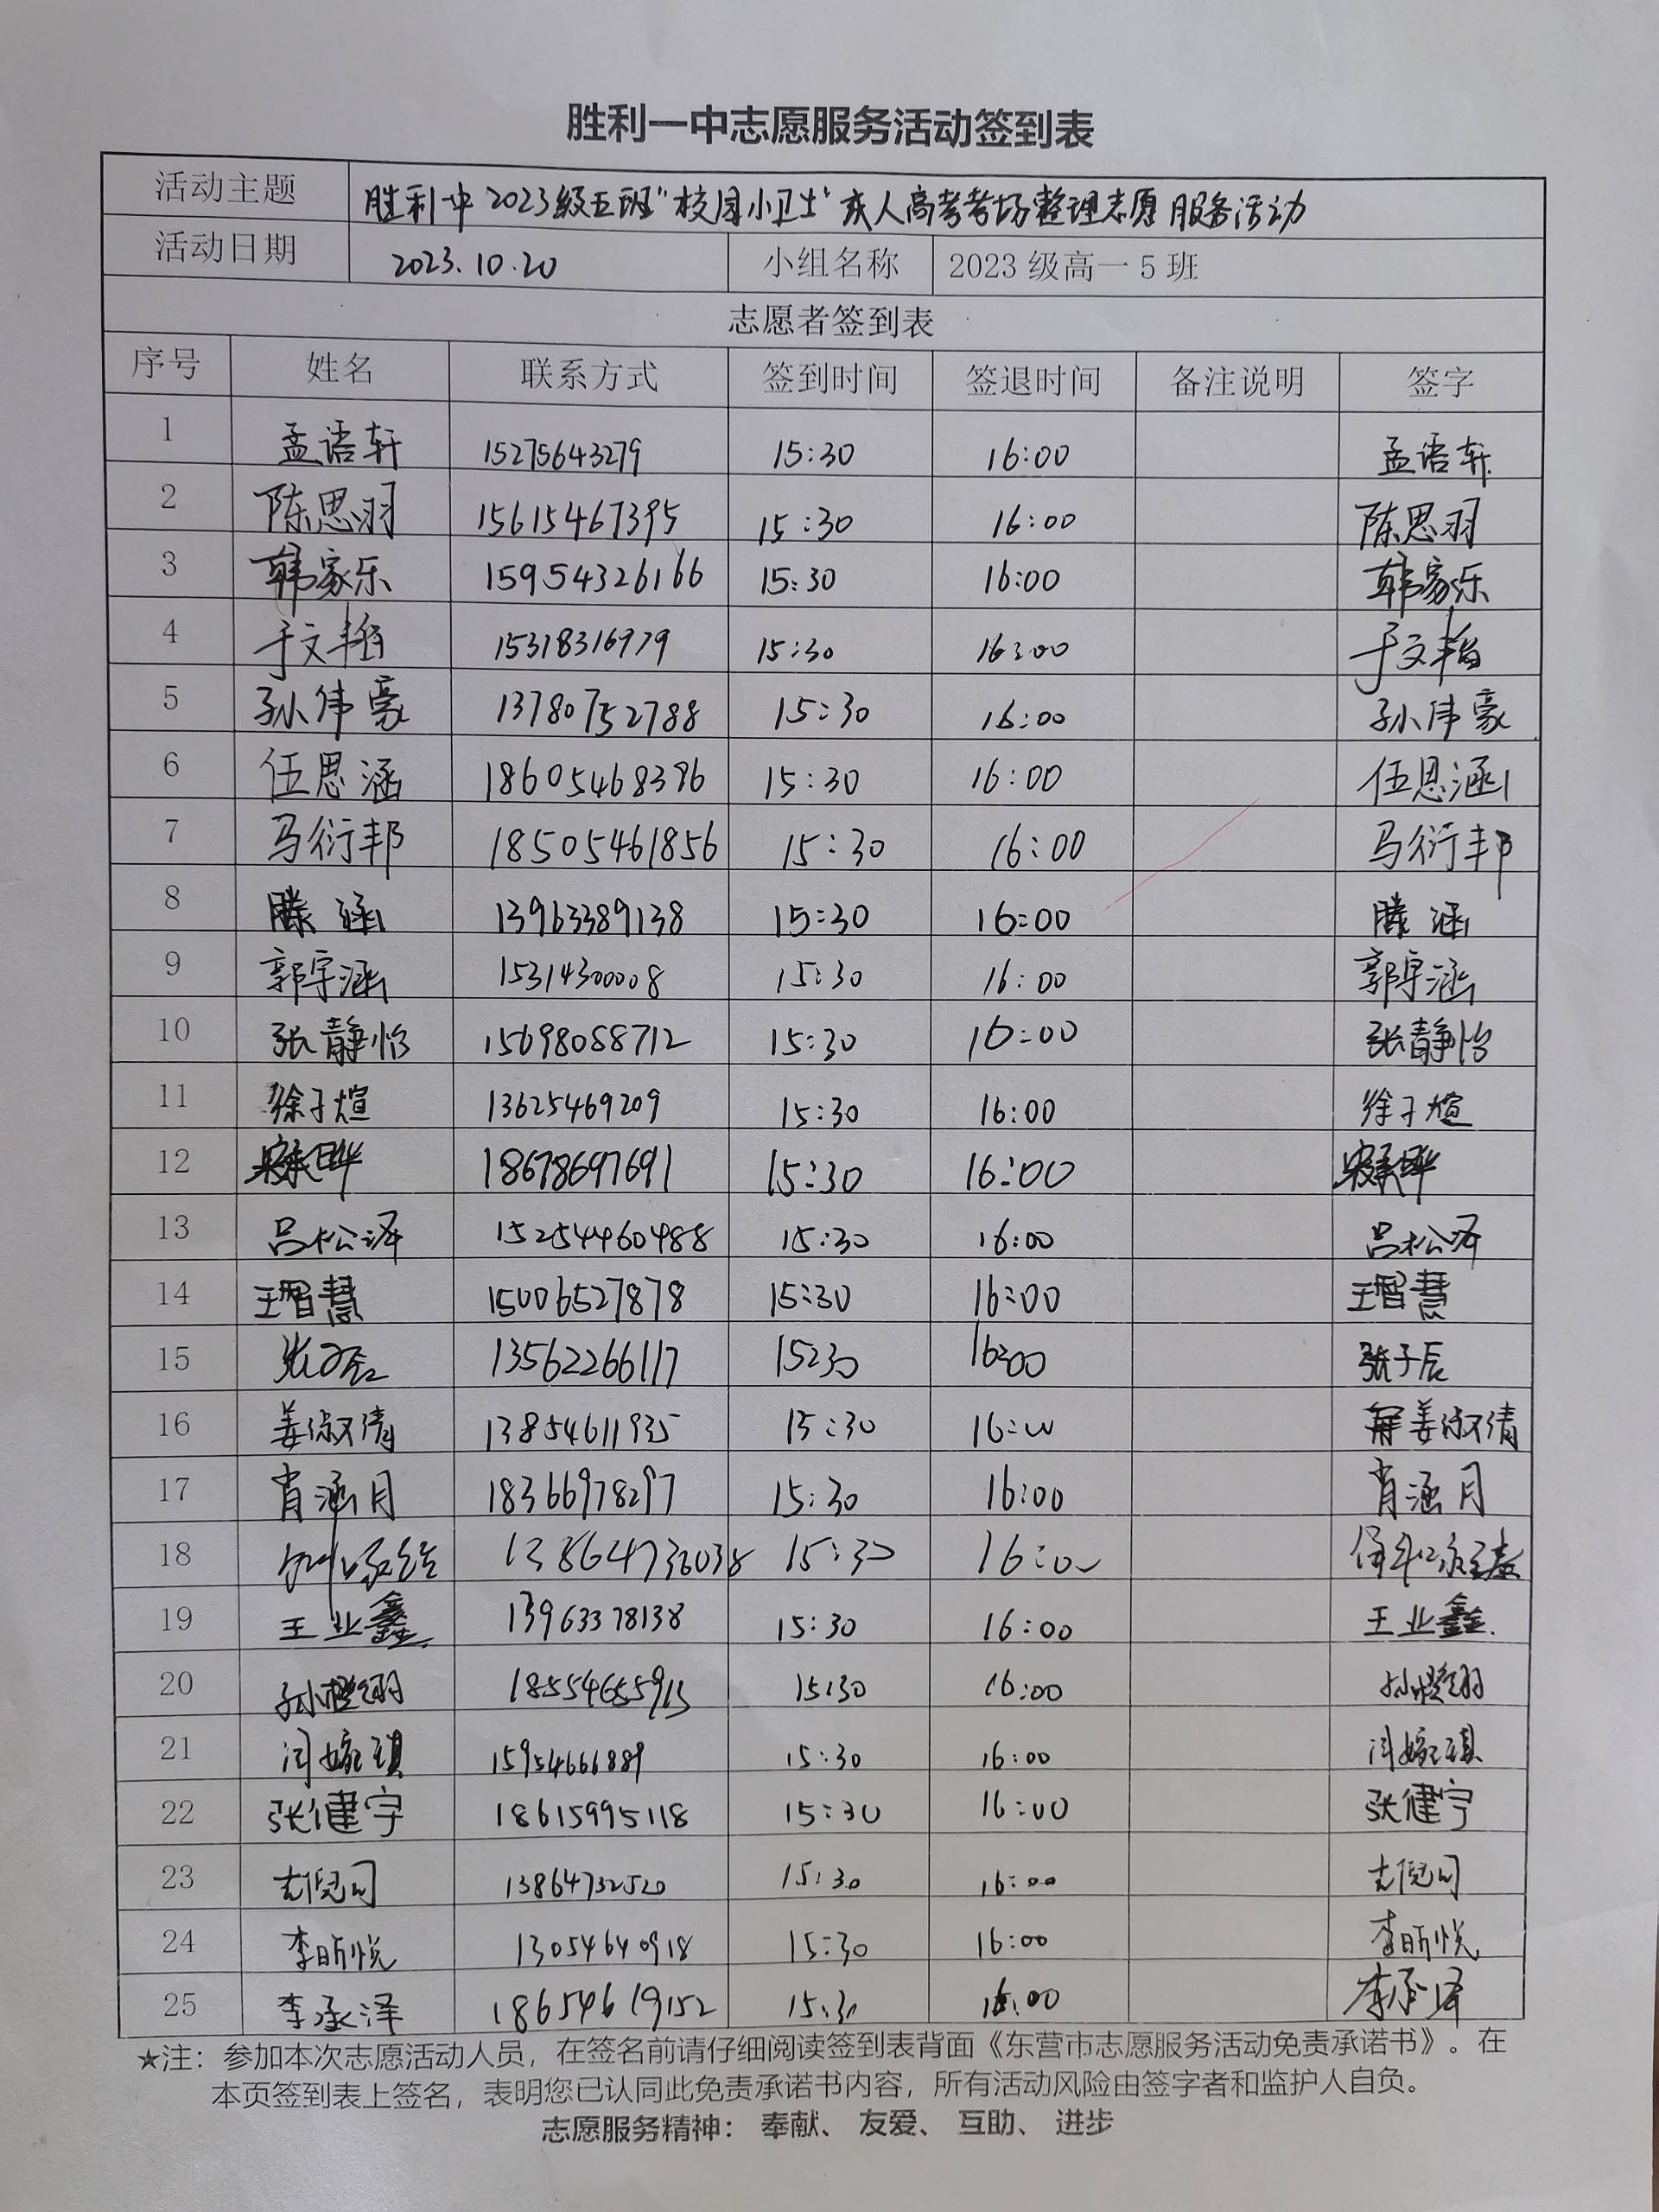 胜利一中志愿服务活动签到表
活动主题 胜利一中2023级五班“校园小卫士”成人高考考场整理志愿服务活动
活动日期 2023.10.20 小组名称 2023级高一5班
志愿者签到表
序号 姓名 联系方式 签到时间 签退时间 备注说明 签字
1 孟语轩 15275643279 15:30 16:00 孟语轩
2 陈思羽 15615467395 15:30 16:00 陈思羽
3 韩家乐 15954326166 15:30 16:00 韩家乐
4 于文韬 15318316979 15:30 16:00 于文韬
5 孙伟豪 13780752788 15:30 16:00 孙伟豪
6 伍思涵 18605468396 15:30 16:00 伍思涵
7 马衍邦 18505461856 15:30 16:00 马衍邦
8 滕涵 13963389138 15:30 16:00 滕涵
9 郭宇涵 15314300008 15:30 16:00 郭宇涵
10 张静怡 15698088712 15:30 16:00 张静怡
11 徐子煊 13625469209 15:30 16:00 徐子煊
12 18678697691 15:30 16:00
13 吕松泽 15254460488 15:30 16:00 吕松泽
14 王智慧 15006527878 15:30 16:00 王智慧
15 张子辰 13562266117 15:30 16:00 张子辰
16 姜淑清 13854611935 15:30 16:00 姜淑清
17 肖涵月 18366978297 15:30 16:00 肖涵月
18 13864736038 15:30 16:00
19 王业鑫 13963378138 15:30 16:00 王业鑫
20 15:30 16:00
21 闫嫁琪 15954666889 15:30 16:00 闫嫁琪
22 张健宇 18615995118 15:30 16:00 张健宇
23 13864732520 15:30 16:00
24 李昕悦 13054640918 15:30 16:00 李昕悦
25 李承泽 18654619152 15:30 16:00 李承泽
★注：参加本次志愿活动人员，在签名前请仔细阅读签到表背面《东营市志愿服务活动免责承诺书》。在
本页签到表上签名，表明您已认同此免责承诺书内容，所有活动风险由签字者和监护人自负。
志愿服务精神：奉献、友爱、互助、进步